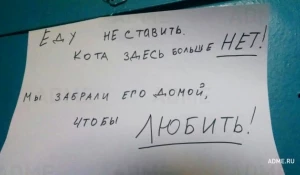 Еду не ставить.
Кота здесь больше НЕТ!
Мы забрали его домой,
чтобы ЛЮБИТЬ!
ADME.RU